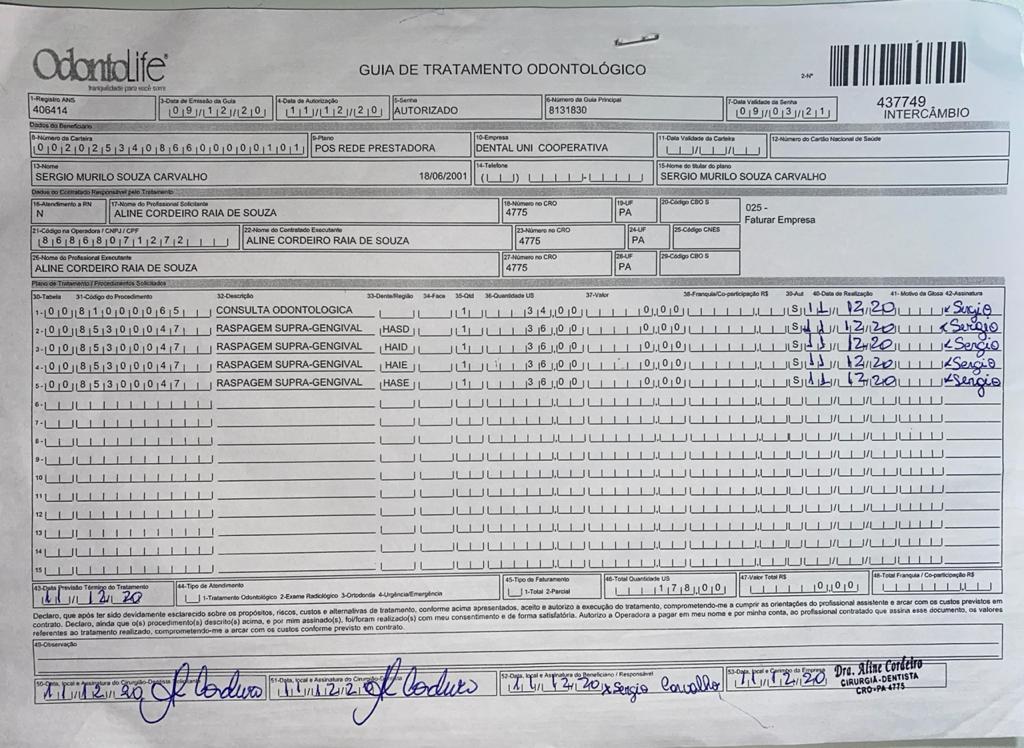 OdontoLife
tranquilidade para você sorrir
GUIA DE TRATAMENTO ODONTOLÓGICO
2-Nº
437749
INTERCÂMBIO
1-Registro ANS 3-Data de Emissão da Guia 4-Data de Autorização 5-Senha 6-Número da Guia Principal 7-Data Validade da Senha
406414 09/12/20 11/12/20 AUTORIZADO 8131830 09/03/21
Dados do Beneficiário
8-Número da Carteira 9-Plano 10-Empresa 11-Data Validade da Carteira 12-Número do Cartão Nacional de Saúde
00202534086600000101 POS REDE PRESTADORA DENTAL UNI COOPERATIVA
13-Nome 14-Telefone 15-Nome do titular do plano
SERGIO MURILO SOUZA CARVALHO 18/06/2001 SERGIO MURILO SOUZA CARVALHO
Dados do Contratado Responsável pelo Tratamento
16-Atendimento a RN 17-Nome do Profissional Solicitante 18-Número no CRO 19-UF 20-Código CBO S
N ALINE CORDEIRO RAIA DE SOUZA 4775 PA
025 -
Faturar Empresa
21-Código na Operadora / CNPJ / CPF 22-Nome do Contratado Executante 23-Número no CRO 24-UF 25-Código CNES
86868071272 ALINE CORDEIRO RAIA DE SOUZA 4775 PA
26-Nome do Profissional Executante 27-Número no CRO 28-UF 29-Código CBO S
ALINE CORDEIRO RAIA DE SOUZA 4775 PA
Plano de Tratamento / Procedimentos Solicitados
30-Tabela 31-Código do Procedimento 32-Descrição 33-Dente/Região 34-Face 35-Qtd 36-Quantidade US 37-Valor 38-Franquia/Co-participação R$ 39-Aut 40-Data de Realização 41- Motivo da Glosa 42-Assinatura
1- 00 81000065 CONSULTA ODONTOLOGICA 1 34,00 0,00 S 11/12/20 x Sergio
2- 00 85300047 RASPAGEM SUPRA-GENGIVAL HASD 1 36,00 0,00 S 11/12/20 x Sergio
3- 00 85300047 RASPAGEM SUPRA-GENGIVAL HAID 1 36,00 0,00 S 11/12/20 x Sergio
4- 00 85300047 RASPAGEM SUPRA-GENGIVAL HAIE 1 36,00 0,00 S 11/12/20 x Sergio
5- 00 85300047 RASPAGEM SUPRA-GENGIVAL HASE 1 36,00 0,00 S 11/12/20 x Sergio
6-
7-
8-
9-
10
11
12
13
14
15
43-Data Previsão Término do Tratamento 44-Tipo de Atendimento 45-Tipo de Faturamento 46-Total Quantidade US 47-Valor Total R$ 48-Total Franquia / Co-participação R$
11/12/20 1-Tratamento Odontológico 2-Exame Radiológico 3-Ortodontia 4-Urgência/Emergência 1-Total 2-Parcial 178,00 0,00
Declaro, que após ter sido devidamente esclarecido sobre os propósitos, riscos, custos e alternativas de tratamento, conforme acima apresentados, aceito e autorizo a execução do tratamento, comprometendo-me a cumprir as orientações do profissional assistente e arcar com os custos previstos em
contrato. Declaro, ainda que o(s) procedimento(s) descrito(s) acima, e por mim assinado(s), foi/foram realizado(s) com meu consentimento e de forma satisfatória. Autorizo a Operadora a pagar em meu nome e por minha conta, ao profissional contratado que assina esse documento, os valores
referentes ao tratamento realizado, comprometendo-me a arcar com os custos conforme previsto em contrato.
49-Observação
50-Data, local e Assinatura do Cirurgião-Dentista 51-Data, local e Assinatura do Cirurgião-Dentista 52-Data, local e Assinatura do Beneficiário / Responsável 53-Data, local e Carimbo da Empresa
11/12/20 Cordeiro 11/12/20 Cordeiro 11/12/20 x Sergio Carvalho 11/12/20
Dra. Aline Cordeiro
CIRURGIÃ-DENTISTA
CRO-PA 4775